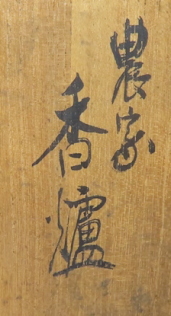 農家
香爐